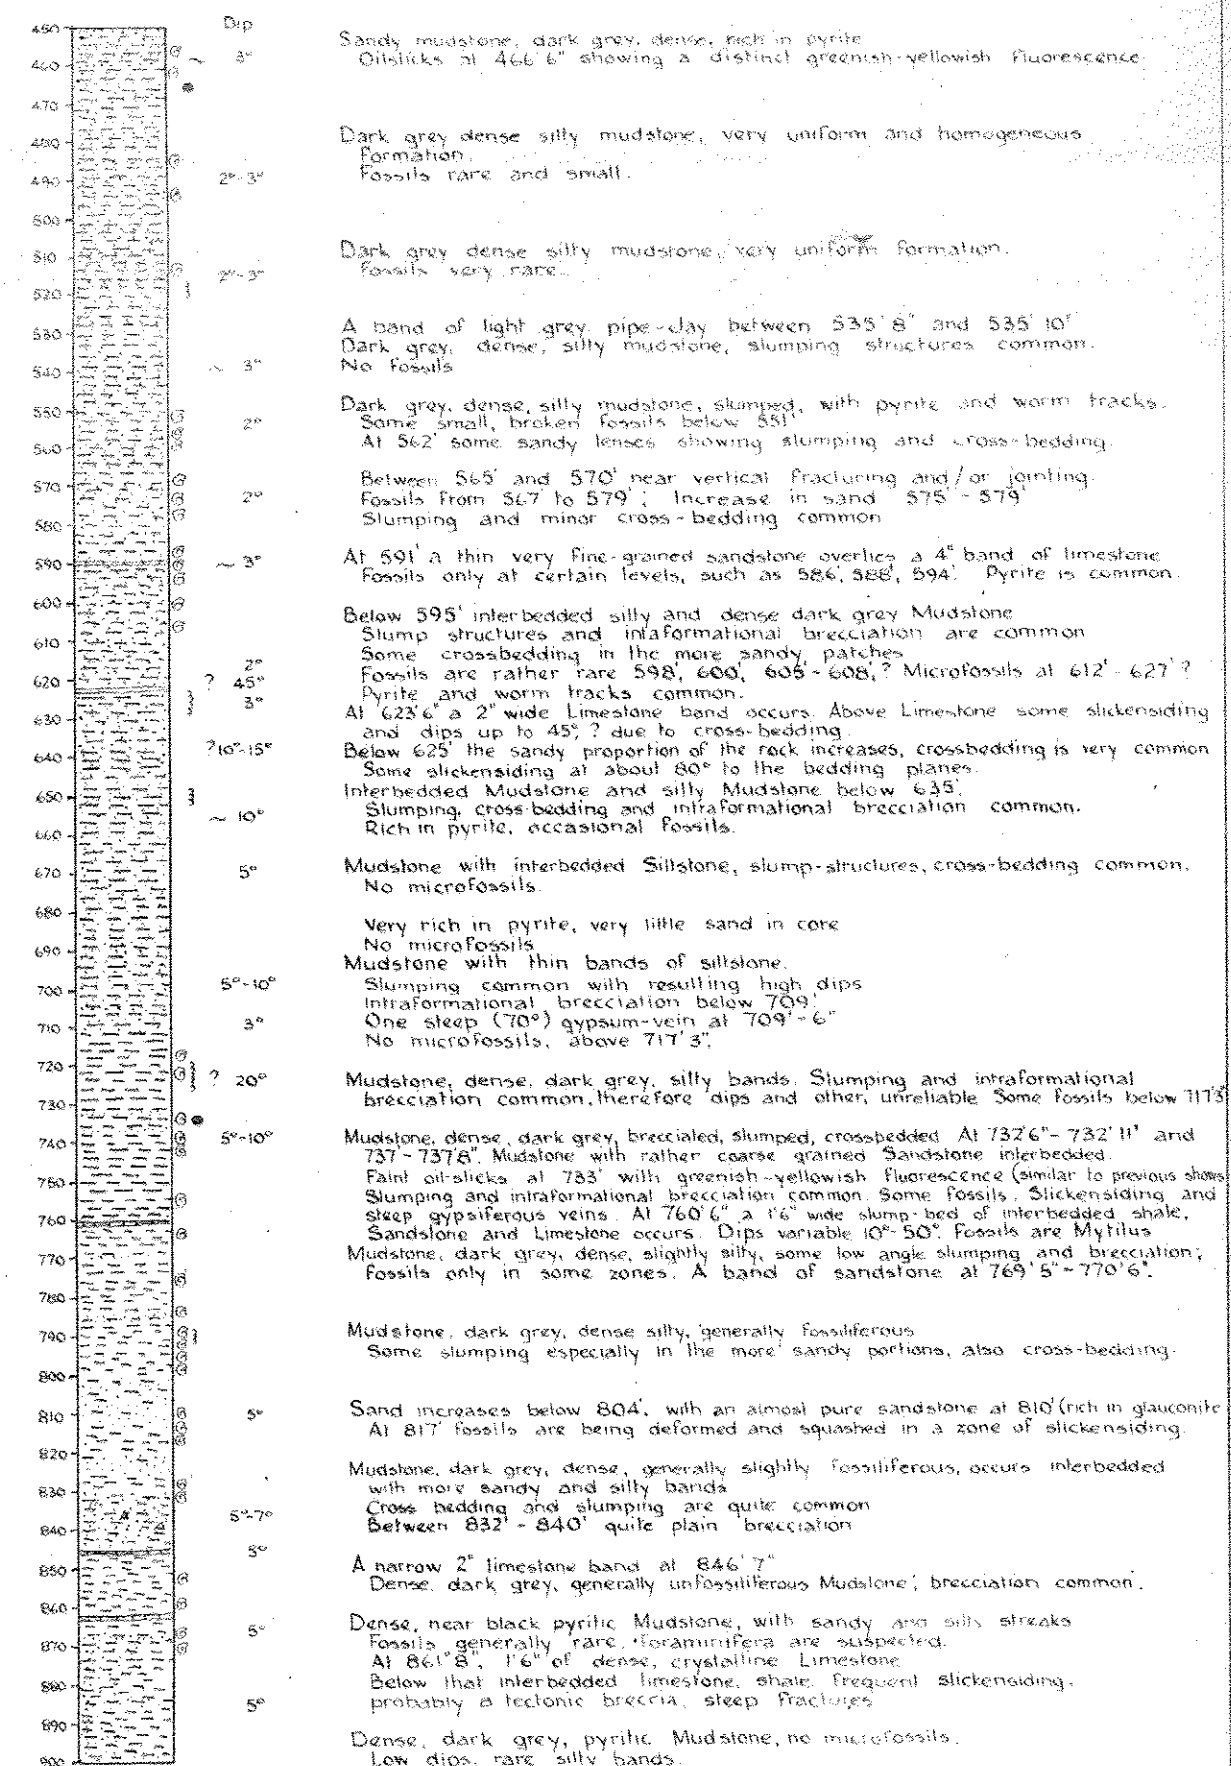 Dip
450
Sandy mudstone, dark grey, dense, rich in pyrite
460
~ 3°
Oilslicks at 466'6" showing a distinct greenish-yellowish fluorescence.
470
480
Dark grey dense silty mudstone, very uniform and homogeneous
Formation.
490
2°-3°
Fossils rare and small.
500
510
Dark grey dense silty mudstone, very uniform formation.
2°-3°
Fossils very rare.
520
530
A band of light grey pipe-clay between 535'8" and 535'10"
Dark grey, dense, silty mudstone, slumping structures common.
540
~ 3°
No Fossils
550
Dark grey, dense, silty mudstone, slumped, with pyrite and worm tracks.
2°
Some small, broken fossils below 551'
560
At 562' some sandy lenses showing slumping and cross-bedding.
Between 565' and 570' near vertical fracturing and/or jointing.
570
2°
Fossils from 567' to 579'; Increase in sand 575' - 579'
580
Slumping and minor cross-bedding common
590
~ 3°
At 591' a thin very fine-grained sandstone overlies a 4" band of limestone
Fossils only at certain levels, such as 586', 588', 594'. Pyrite is common.
600
Below 595' interbedded silty and dense dark grey Mudstone
610
Slump structures and intaformational brecciation are common
Some crossbedding in the more sandy patches
2°
Fossils are rather rare 598', 600', 605'-608',? Microfossils at 612' - 627' ?
620
? 45°
Pyrite and worm tracks common.
3°
At 623'6" a 2" wide Limestone band occurs. Above Limestone some slickensiding
630
and dips up to 45°, ? due to cross-bedding.
640
?10°-15°
Below 625' the sandy proportion of the rock increases, crossbedding is very common
Some slickensiding at about 80° to the bedding planes.
650
Interbedded Mudstone and silty Mudstone below 635'.
~ 10°
Slumping, cross-bedding and intraformational brecciation common.
660
Rich in pyrite, occasional fossils.
670
5°
Mudstone with interbedded Siltstone, slump-structures, cross-bedding common.
No microfossils.
680
Very rich in pyrite, very little sand in core
690
No microfossils
Mudstone with thin bands of siltstone.
700
5°-10°
Slumping common with resulting high dips
Intraformational brecciation below 709'
710
3°
One steep (70°) gypsum-vein at 709'-6"
No microfossils, above 717'3".
720
? 20°
Mudstone, dense, dark grey, silty bands. Slumping and intraformational
730
brecciation common, therefore dips and other, unreliable Some fossils below 717'3"
740
5°-10°
Mudstone, dense, dark grey, brecciated, slumped, crossbedded At 732'6"- 732'11" and
737'- 737'8". Mudstone with rather coarse grained Sandstone interbedded.
750
Faint oil-slicks at 733' with greenish-yellowish fluorescence (similar to previous shows
Slumping and intraformational brecciation common. Some fossils. Slickensiding and
760
steep gypsiferous veins. At 760'6" a 1'6" wide slump-bed of interbedded shale,
Sandstone and Limestone occurs. Dips variable 10°-50°. Fossils are Mytilus
770
Mudstone, dark grey, dense, slightly silty, some low angle slumping and brecciation;
Fossils only in some zones. A band of sandstone at 769'5"-770'6".
780
790
Mudstone, dark grey, dense silty, generally fossiliferous
Some slumping especially in the more sandy portions, also cross-bedding.
800
810
5°
Sand increases below 804', with an almost pure sandstone at 810' (rich in glauconite
At 817' fossils are being deformed and squashed in a zone of slickensiding.
820
Mudstone, dark grey, dense, generally slightly fossiliferous, occurs interbedded
830
with more sandy and silty bands
5°-7°
Cross bedding and slumping are quite common
840
Between 832' - 840' quite plain brecciation
3°
850
A narrow 2" limestone band at 846'7"
Dense, dark grey, generally unfossiliferous Mudstone, brecciation common.
860
5°
Dense, near black pyritic Mudstone, with sandy and silty streaks
870
Fossils generally rare, foraminifera are suspected.
At 861"8", 1'6" of dense, crystalline Limestone
880
Below that interbedded limestone, shale, frequent slickensiding,
5°
probably a tectonic breccia, steep fractures
890
Dense, dark grey, pyritic Mudstone, no microfossils.
900
Low dips, rare silty bands.